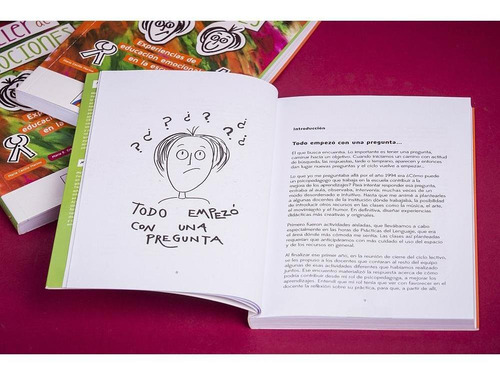 LER
OCIONES
Experiencias de
educación emocional
en la esc
¿ ? ¿ ? ¿ ?
TODO EMPEZÓ
CON UNA
PREGUNTA
Introducción
Todo empezó con una pregunta...
El que busca encuentra. Lo importante es tener una pregunta,
caminar hacia un objetivo. Cuando iniciamos un camino con actitud
de búsqueda, las respuestas, tarde o temprano, aparecen y entonces
que lugar nuevas preguntas y el ciclo vuelve a empezar...
Lo que yo me preguntaba allá por el año 1994 era ¿Cómo puede
un psicopedagogo que trabaja en la escuela contribuir a la
mejora de los aprendizajes? Para intentar responder esa pregunta,
entraba al aula, observaba e intervenía. Muchas veces, de modo
desordenado e intuitivo. Hasta que me animé a plantearles
a algunos docentes de la institución donde trabajaba, la posibilidad
de introducir otros recursos en las clases como la música, el arte,
el movimiento y el humor. En definitiva, diseñar experiencias
didácticas más creativas y originales.
Primero fueron actividades aisladas, que llevábamos a cabo
especialmente en las horas de Prácticas del Lenguaje, que era
el área donde más cómoda me sentía. Las clases así planteadas
requerían que anticipáramos con más cuidado el uso del espacio
y de los recursos en general.
Al finalizar ese primer año, en la reunión de cierre del ciclo lectivo,
se les propuso a los docentes que contaran al resto del equipo
algunas de esas actividades diferentes que habíamos realizado
juntos. Ese encuentro materializó la respuesta acerca de cómo
podría contribuir desde mi rol de psicopedagoga, a mejorar los
aprendizajes. Entendí que mi rol tenía que ver con favorecer en el
docente la reflexión sobre su práctica, para que, a partir de allí,